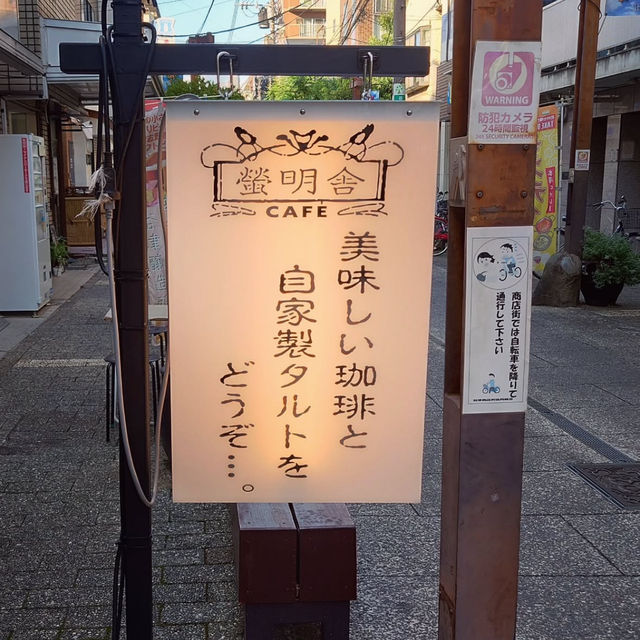 螢明舎
CAFE
美味しい珈琲と
自家製タルトを
どうぞ…。
WARNING
防犯カメラ
24時間監視
24H SECURITY CAMERAS
商店街では自転車を降りて
通行して下さい